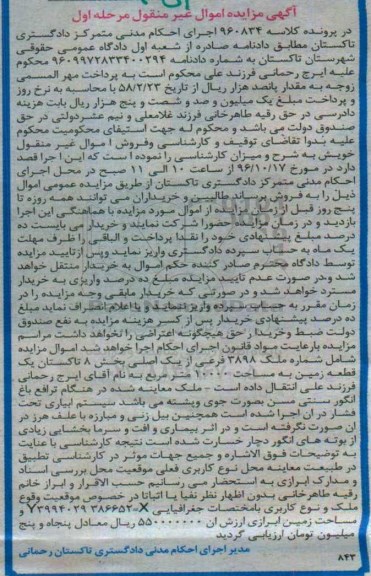 آگهی مزایده اموال غیر منقول مرحله اول
در پرونده کلاسه ۹۶۰۸۳۴ اجرای احکام مدنی متمرکز دادگستری
تاکستان مطابق دادنامه صادره از شعبه اول دادگاه عمومی حقوقی
شهرستان تاکستان به شماره دادنامه ۹۶۰۹۹۷۲۸۳۳۴۰۰۲۹۴ محکوم
علیه ایرج رحمانی فرزند علی محکوم است به پرداخت مهر المسمی
زوجه به مقدار پانصد هزار ریال از تاریخ ۵۸/۲/۲۳ با محاسبه به نرخ روز
و پرداخت مبلغ یک میلیون و صد و شصت و پنج هزار ریال بابت هزینه
دادرسی در حق رقیه طاهرخانی فرزند غلامعلی و نیم عشردولتی در حق
صندوق دولت می باشد و محکوم له جهت استیفای محکومیت محکوم
علیه بدوا تقاضای توقیف و کارشناسی وفروش اموال غیر منقول
خویش به شرح و میزان کارشناسی را نموده است که این اجرا قصد
دارد در مورخ ۹۶/۱۰/۱۷ از ساعت ۱۰ الی ۱۱ صبح در محل اجرای
احکام مدنی متمرکز دادگستری تاکستان از طریق مزایده عمومی اموال
ذیل را به فروش برساند طالبین و خریداران می توانند همه روزه تا
پنج روز قبل از زمان مزایده از اموال مورد مزایده با هماهنگی این اجرا
بازدید و در زمان مزایده حضورا شرکت نمایند و خریدار می بایست ده
درصد مبلغ پیشنهادی خود را نقدا پرداخت و الباقی را ظرف مهلت
یک ماه به حساب سپرده دادگستری واریز نماید وپس از تایید مزایده
توسط دادگاه محترم صادر کننده حکم اموال به خریدار منتقل خواهد
شد و،در صورت عدم تایید مزایده مبلغ ده درصد واریزی به خریدار
مسترد خواهد شد و در صورتی که خریدار مابقی وجه مزایده را در
زمان مقرر به حساب سپرده واریز ننماید و یا اعلام انصراف نماید مبلغ
ده درصد پیشنهادی خریدار پس از کسر هزینه مزایده به نفع صندوق
دولت ضبط وخریدار حق هیچگونه اعتراضی را نخواهد داشت مراسم
مزایده بارعایت مواد قانون اجرای احکام اجرا خواهد شد اموال مزایده
شامل شماره ملک ۳۸۹۸ فرعی از یک اصلی بخش ۸ تاکستان یک
قطعه زمین به مساحت متر مربع به نام آقای ایرج رحمانی
فرزند علی انتقال داده است - ملک معاینه شده در هنگام ترافع باغ
انگور سنتی مسن بصورت جوی وپشته می باشد سیستم آبیاری تحت
فشار در آن اجرا شده است همچنین بیل زنی و مبارزه با علف هرز در
آن صورت نگرفته است و در اثر بیماری و آفت و سرما بخشایی زیادی
از بوته های انگور دچار خسارت شده است نتیجه کارشناسی با عنایت
به توضیحات فوق الاشاره و جمیع جهات موثر در کارشناسی تطبیق
در طبیعت معاینه محل نوع کاربری فعلی موقعیت محل بررسی اسناد
و مدارک ابرازی به استحضار می رسانیم حسب الاقرار و ابراز خانم
رقیه طاهرخانی بدون اظهار نظر نفیا یا اثباتا در خصوص موقعیت وقوع
ملک و نوع کاربری بامختصات جغرافیایی X-۳۸۶۶۵۲ Y۳۹۹۴۰۲۹ و
مساحت زمین ابرازی ارزش آن ۵۵۰۰۰۰۰۰۰ ریال معادل پنجاه و پنج
میلیون تومان ارزیابی گردید
مدیر اجرای احکام مدنی دادگستری تاکستان رحمانی
۸۴۳